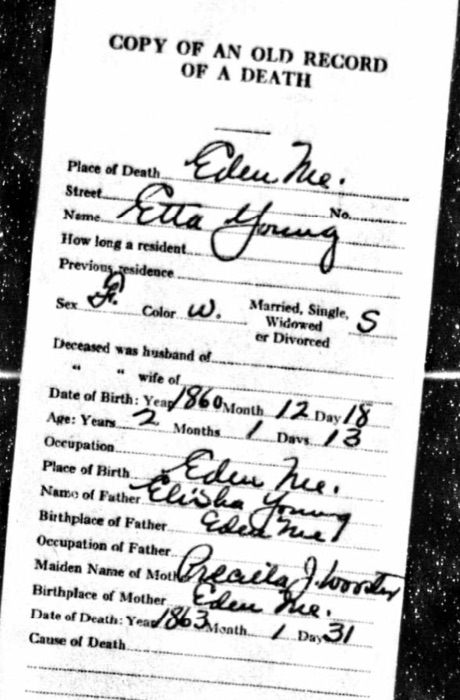 COPY OF AN OLD RECORD
OF A DEATH
Place of Death Eden Me.
Street No.
Name Etta Young
How long a resident
Previous residence
Sex F. Color W. Married, Single, S
Widowed
or Divorced
Deceased was husband of
" " wife of
Date of Birth: Year 1860 Month 12 Day 18
Age: Years 2 Months 1 Days 13
Occupation
Place of Birth Eden Me.
Name of Father Elisha Young
Birthplace of Father Eden Me
Occupation of Father
Maiden Name of Mother Precilla J. Wooster
Birthplace of Mother Eden Me.
Date of Death: Year 1863 Month 1 Day 31
Cause of Death